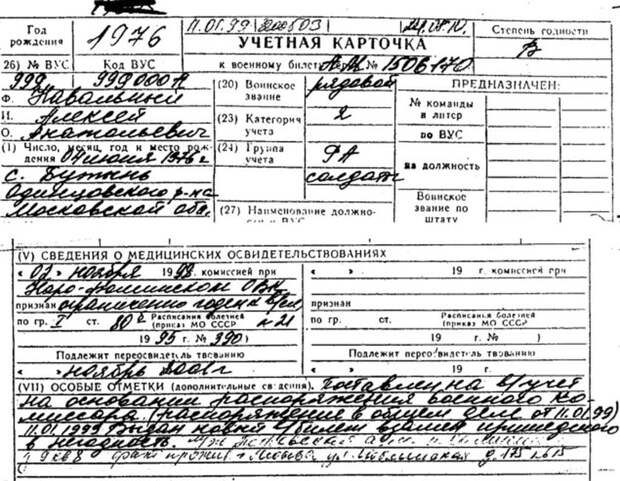 Год рождения 1976 11.01.99 21.01.10. Степень годности
УЧЕТНАЯ КАРТОЧКА В
26) № ВУС Код ВУС к военному билету № 1506170
999 999000А (20) Воинское звание рядовой ПРЕДНАЗНАЧЕН:
Ф. Навальный № команды и литер
И. Алексей (23) Категория учета 2
О. Анатольевич по ВУС
(1) Число, месяц, год и место рождения 04 июня 1976 г (24) Группа учета на должность
с. Бутынь солдат
Одинцовского р-на Воинское звание по штату
Московской обл. (27) Наименование должно-
(V) СВЕДЕНИЯ О МЕДИЦИНСКИХ ОСВИДЕТЕЛЬСТВОВАНИЯХ
« 02 » ноября 19 98. комиссией при « » 19 г. комиссией при
Наро-Фоминском ОВК
признан ограниченно годен к в/сл признан
по гр. I ст. Расписания болезней (приказ МО СССР по гр. ст. Расписания болезней (приказ МО СССР
19 95 г. № 390) 19 г. № )
Подлежит переосвидетельствованию Подлежит переосвидетельствованию
« » ноябрь 2001 г « » 19 г.
(VII) ОСОБЫЕ ОТМЕТКИ (дополнительные сведения). Поставлен на в/учет
на основании распоряжения военного ко-
миссара (распоряжение в общем деле от 11.01.99)
11.01.1999 Выдан новый в/билет взамен пришедшего
в негодность.